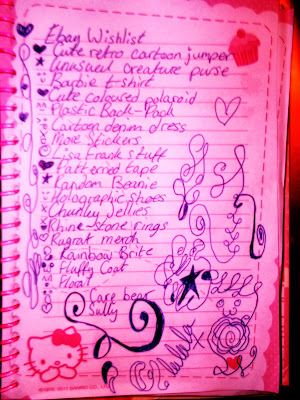 Ebay Wishlist
Cute retro cartoon jumper
Unusual creature purse
Barbie t-shirt
Cute coloured polaroid
Plastic Back-Pack
Cartoon denim dress
More Stickers
Lisa Frank stuff
Patterned tape
Fandom Beanie
Holographic shoes
Chunky Jellies
Rhine-stone rings
Rugrat merch
Rainbow Brite
Fluffy Coat
Ploai
Care bear
Sully
Lalala x